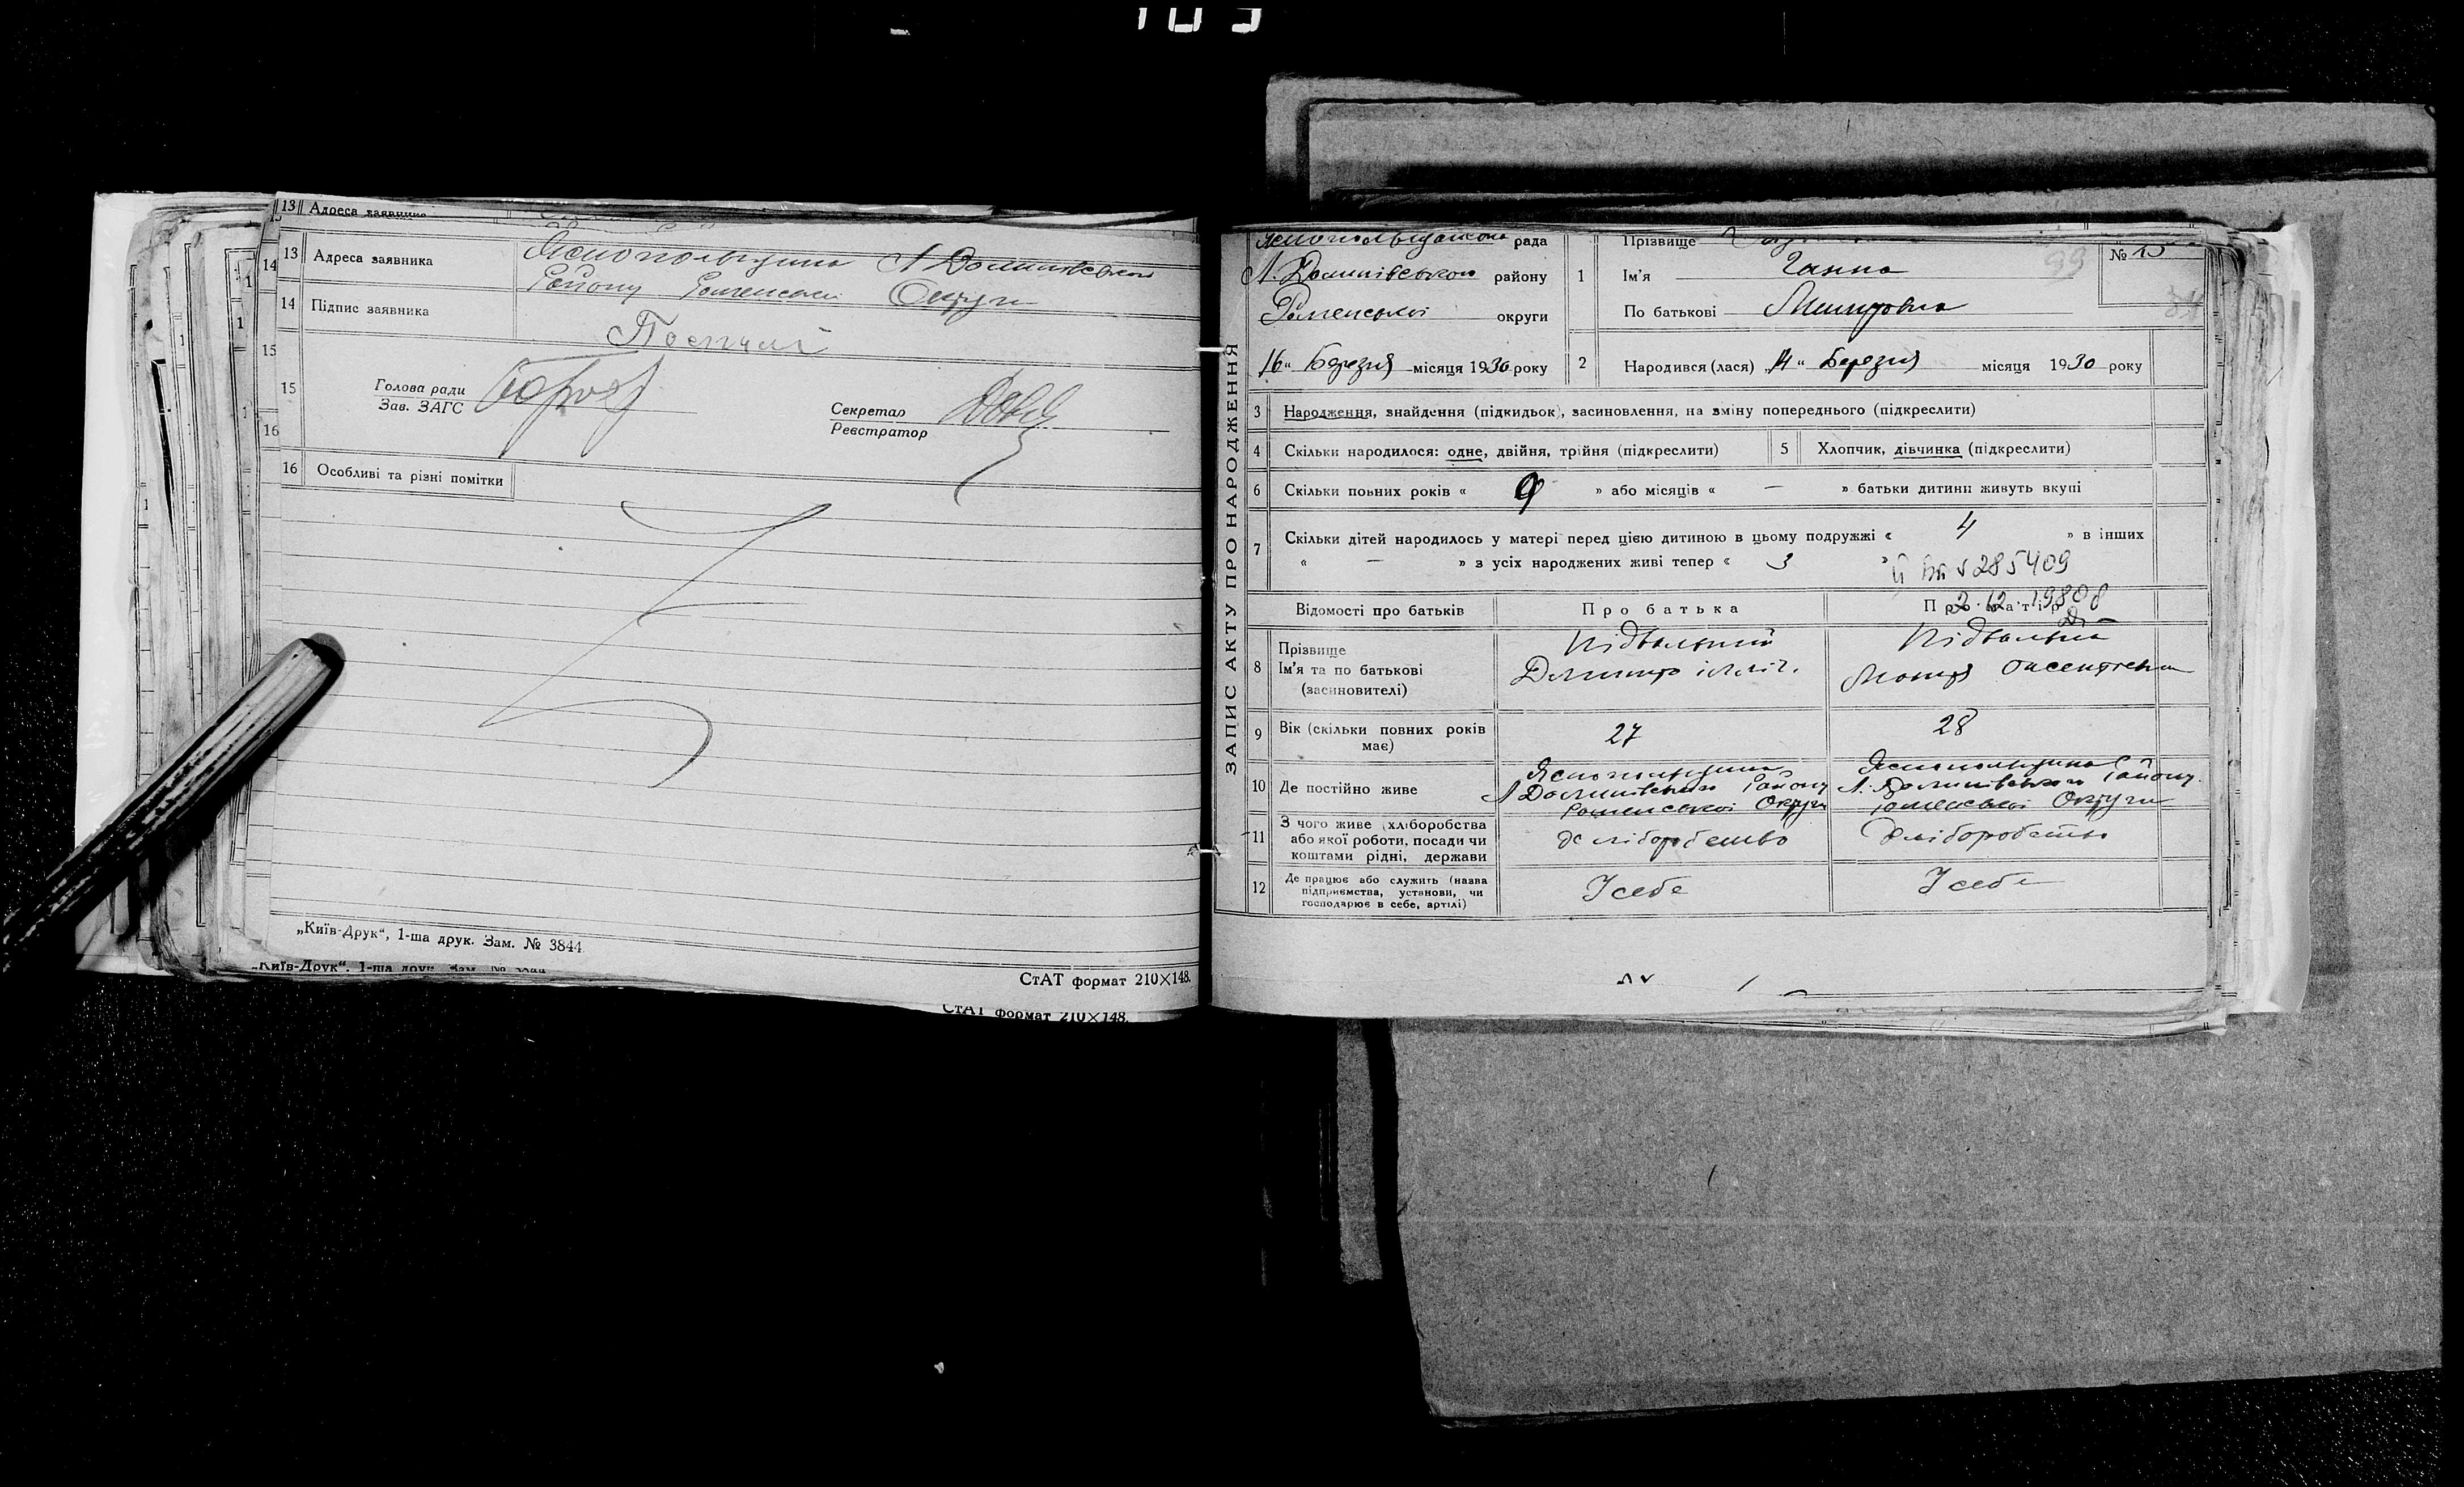 13 Адреса заявника
13 Адреса заявника Яснопольщина Л Долинівського
Району Роменської Округи
14 Підпис заявника
15 Голова ради
Зав. ЗАГС
Секретар
Реєстратор
16 Особливі та різні помітки
„Київ-Друк“, 1-ша друк. Зам. № 3844
СтАТ формат 210×148.
„Київ-Друк“, 1-ша друк. Зам. № 3844
СтАТ формат 210×148.
ЗАПИС АКТУ ПРО НАРОДЖЕННЯ
рада
Л. Долинівського району
Роменської округи
16 “ Березня місяця 1930 року
1 Прізвище
Ім'я Ганна
По батькові Дмитровна
№ 15
99
2 Народився (лася) „14 “ Березня місяця 1930 року
3 Народження, знайдення (підкидьок), засиновлення, на зміну попереднього (підкреслити)
4 Скільки народилося: одне, двійня, трійня (підкреслити)
5 Хлопчик, дівчинка (підкреслити)
6 Скільки повних років « 9 » або місяців « — » батьки дитини живуть вкупі
7 Скільки дітей народилось у матері перед цією дитиною в цьому подружжі « 4 » в інших
« — » з усіх народжених живі тепер « 3 »
285409
Відомості про батьків Про батька Про матір
2.12.1980
8 Прізвище
Ім'я та по батькові
(засиновителі)
Підвальний
Дмитро ілліч.
Підвальна
Оксентівна
9 Вік (скільки повних років має) 27 28
10 Де постійно живе
Яснопольщина
Л Долинівського Району
Роменської Округи
Яснопольщина
Л. Долинівського Району
Роменської Округи
11 З чого живе (хліборобства
або якої роботи, посади чи
коштами рідні, держави
хліборобство
хліборобство
12 Де працює або служить (назва
підприємства, установи, чи
господарює в себе, артілі)
У себе
У себе